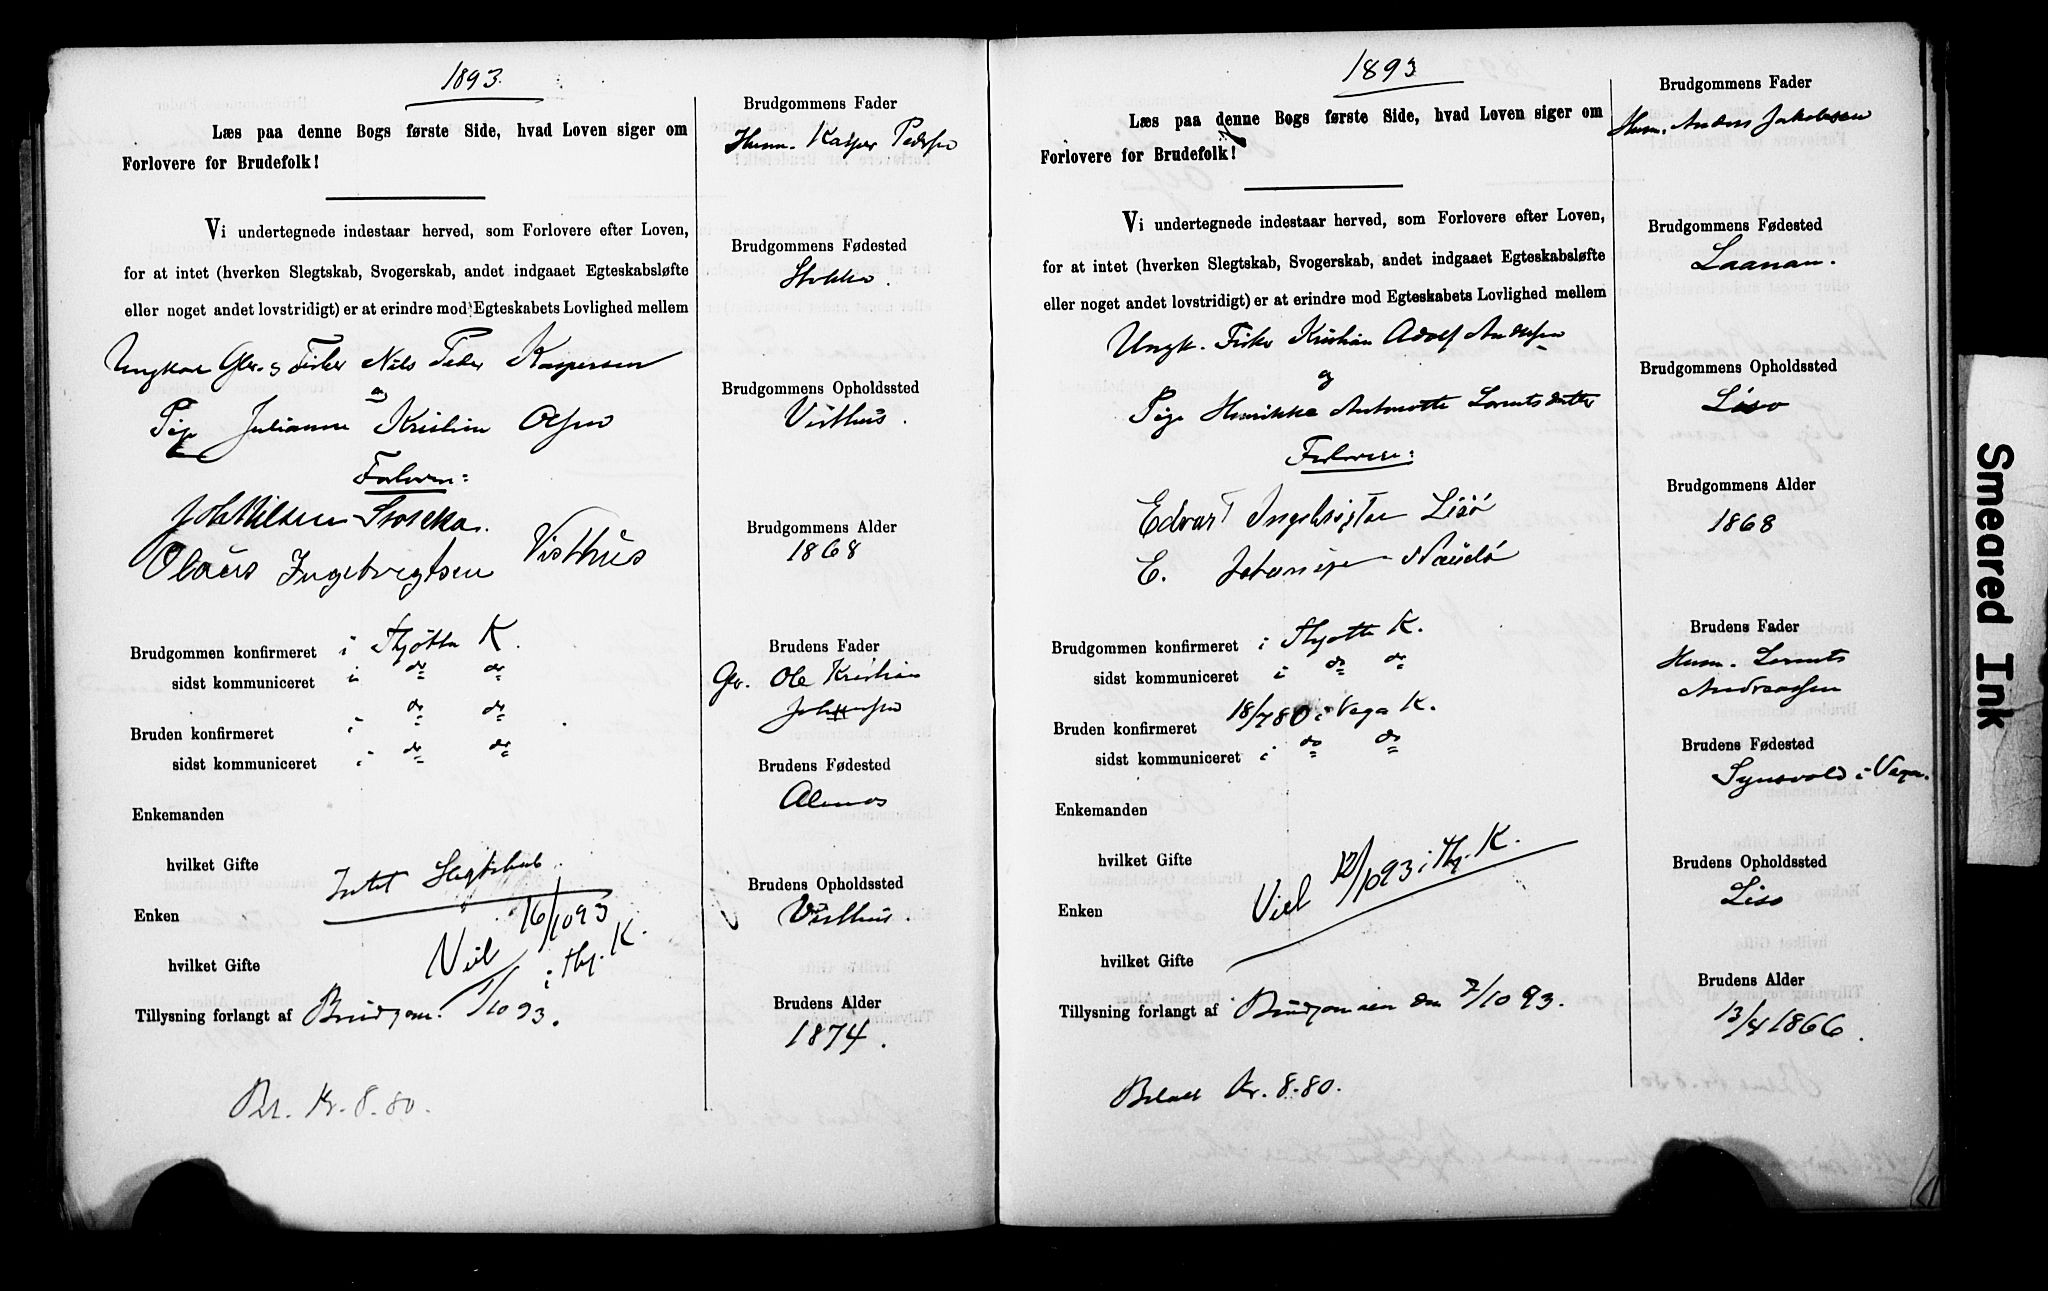 1893.
Læs paa denne Bogs første Side, hvad Loven siger om
Forlovere for Brudefolk!
Vi undertegnede indestaar herved, som Forlovere efter Loven,
for at intet (hverken Slegtskab, Svogerskab, andet indgaaet Egteskabsløfte
eller noget andet lovstridigt) er at erindre mod Egteskabets Lovlighed mellem
Ungkar Gbr. og Fisker Nils Peder Kaspersen
og
Pige Julianne Kristine Olsen
Forlovere:
Joh Nilsen Stokka.
Olaus Ingebrigtsen Visthus
Brudgommen konfirmeret i Thjøtta K.
sidst kommuniceret i do do
Bruden konfirmeret i do do
sidst kommuniceret i do do
Enkemanden
hvilket Gifte
Intet Slegtskab.
Enken
Viel 16/10 93 i Thj. K.
hvilket Gifte
Tillysning forlangt af Brudgom. 1/10 93.
Bet. Kr. 8.80.
Brudgommens Fader
Husm. Kasper Pedersen
Brudgommens Fødested
Stokka.
Brudgommens Opholdssted
Visthus.
Brudgommens Alder
1868
Brudens Fader
Gbr. Ole Kristian
Johansen
Brudens Fødested
Alenæs
Brudens Opholdssted
Visthus.
Brudens Alder
1874.
1893
Læs paa denne Bogs første Side, hvad Loven siger om
Forlovere for Brudefolk!
Vi undertegnede indestaar herved, som Forlovere efter Loven,
for at intet (hverken Slegtskab, Svogerskab, andet indgaaet Egteskabsløfte
eller noget andet lovstridigt) er at erindre mod Egteskabets Lovlighed mellem
Ungk. Fisker Kristian Adolf Andersen
og
Pige Henrikke Antonette Lorntsdatter
Forlovere:
Edvart Ingebrigtsen Lisø
E. Johansen
Brudgommen konfirmeret i Thjøtta K.
sidst kommuniceret i do do
Bruden konfirmeret 18/7 80 i Vega K.
sidst kommuniceret i do do
Enkemanden
hvilket Gifte
Viel 12/10 93 i Thj. K.
Enken
hvilket Gifte
Tillysning forlangt af Brudgommen den 7/10 93.
Betalt Kr. 8.80.
Brudgommens Fader
Husm. Anders Jakobsen
Brudgommens Fødested
Laanan.
Brudgommens Opholdssted
Lisø
Brudgommens Alder
1868
Brudens Fader
Husm. Lornts
Andreassen
Brudens Fødested
Synsvold i Vega.
Brudens Opholdssted
Lisø
Brudens Alder
13/4 1866.
Smeared Ink